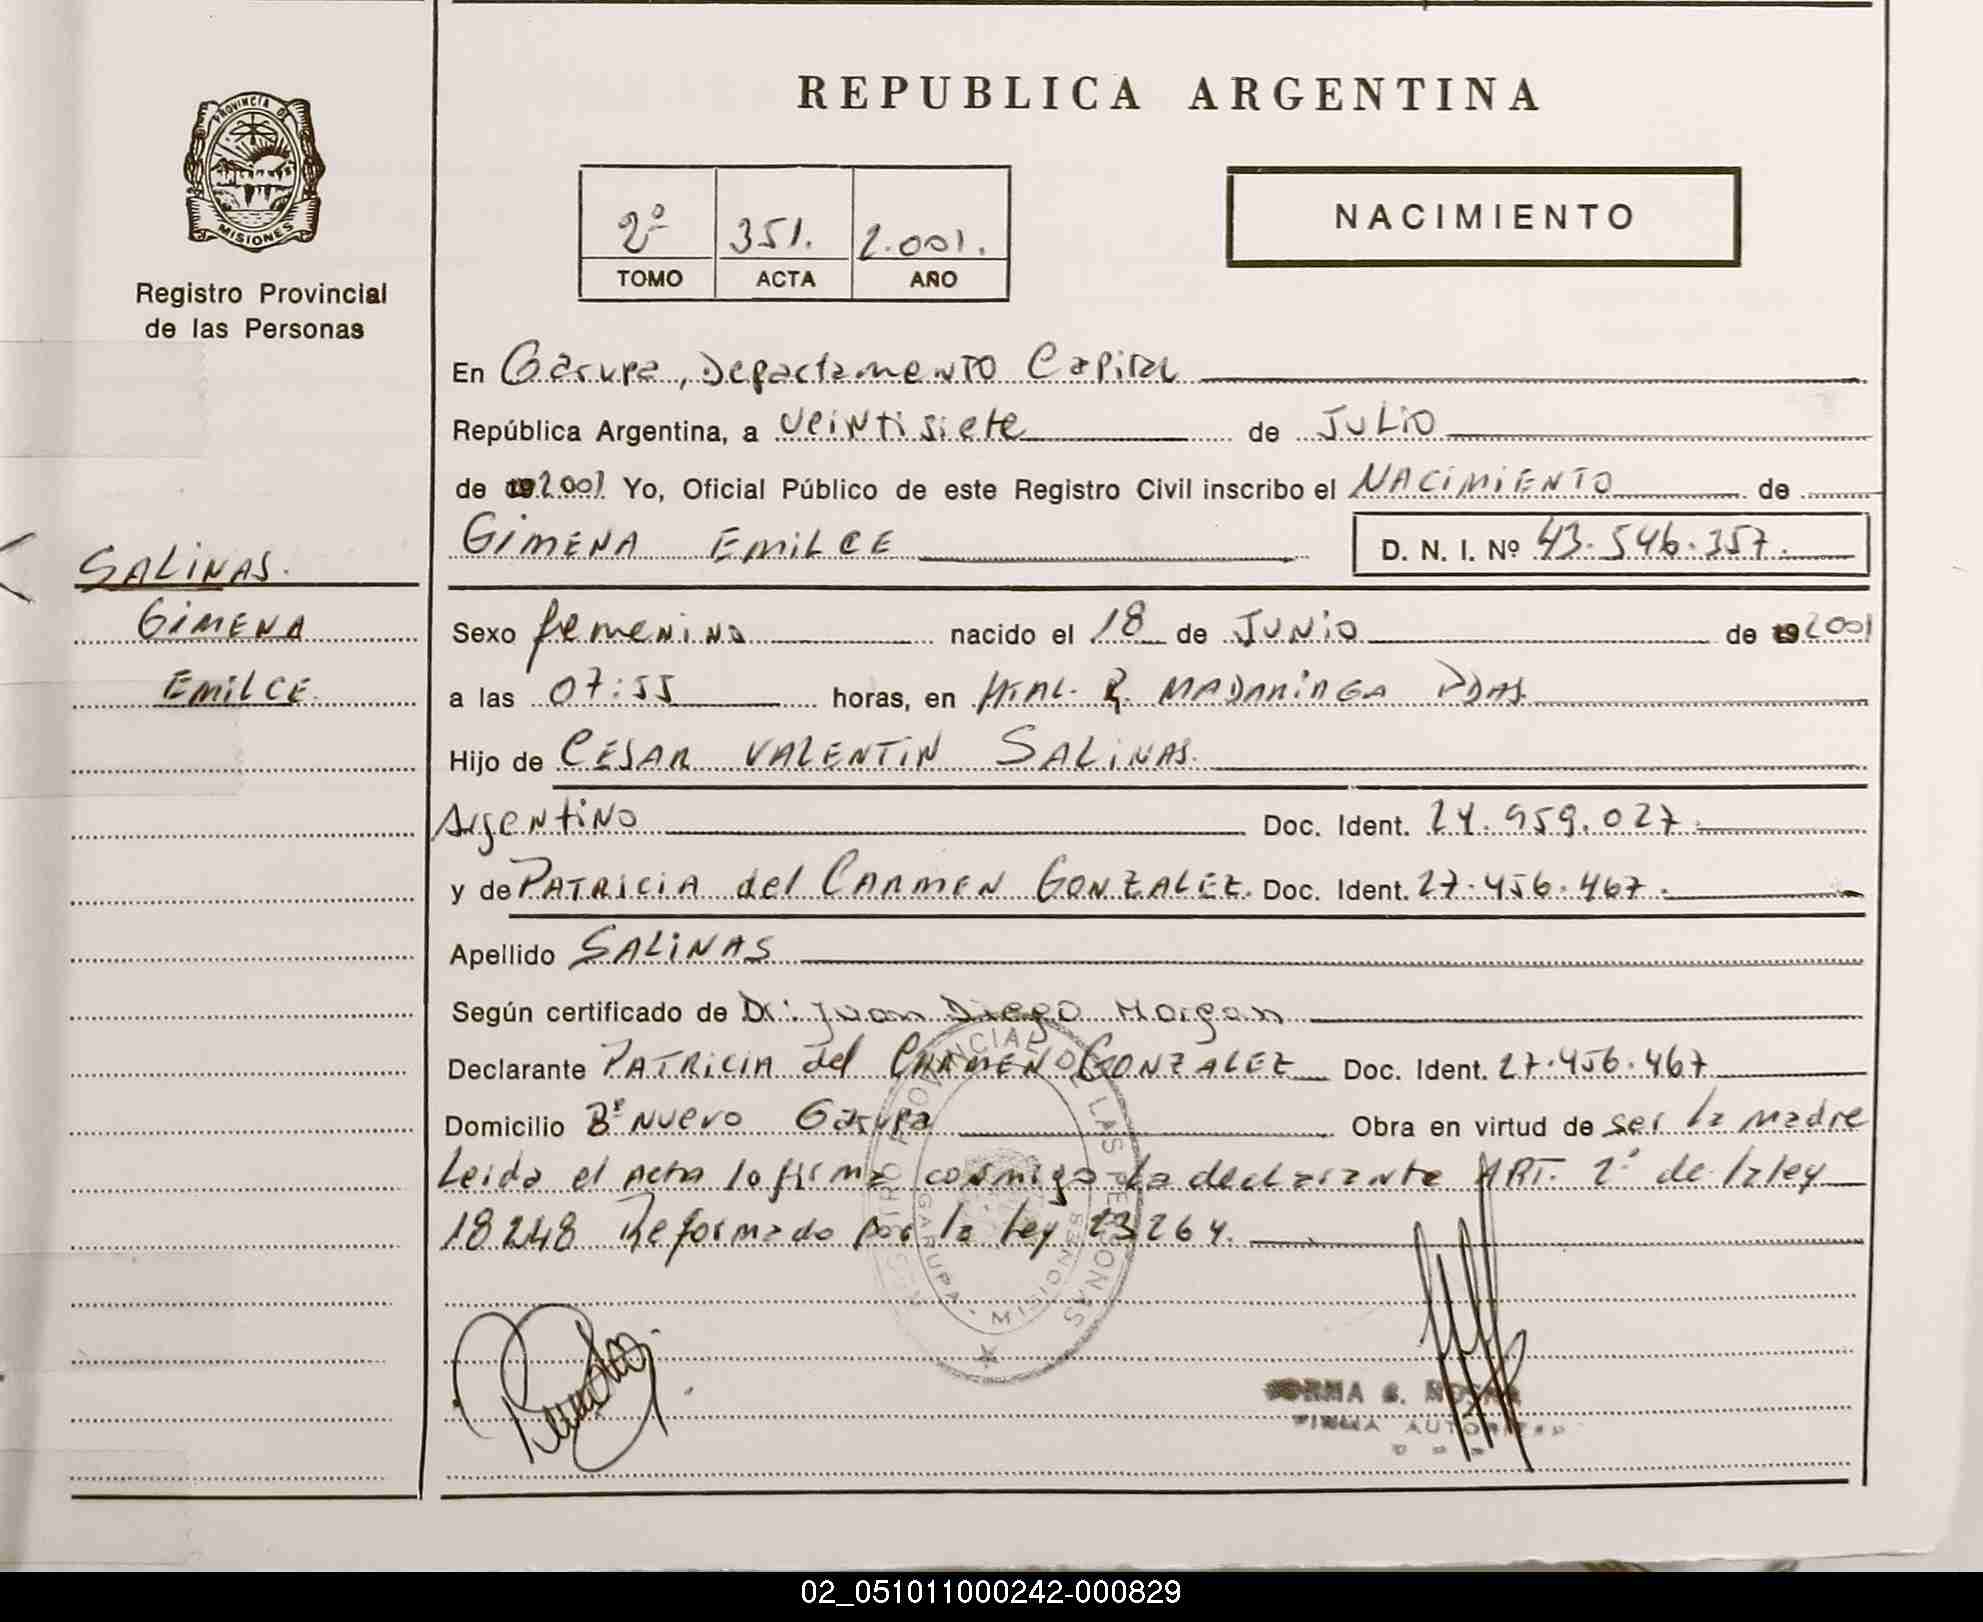 REPUBLICA ARGENTINA
PROVINCIA DE
MISIONES
Registro Provincial
de las Personas
2º 351. 2.001.
TOMO ACTA AÑO
NACIMIENTO
En Garupa, Departamento Capital
República Argentina, a veintisiete de Julio
de 2001 Yo, Oficial Público de este Registro Civil inscribo el NACIMIENTO de
GIMENA EMILCE D. N. I. Nº 43.546.357.
SALINAS.
GIMENA
EMILCE.
Sexo femenino nacido el 18 de JUNIO de 2001
a las 07:55 horas, en Htal. R. MADARIAGA Pdas.
Hijo de CESAR VALENTIN SALINAS.
Argentino Doc. Ident. 24.959.027.
y de PATRICIA del CARMEN GONZALEZ. Doc. Ident. 27.456.467.
Apellido SALINAS
Según certificado de Dr. Juan Diego Morgan
Declarante PATRICIA del CARMEN GONZALEZ Doc. Ident. 27.456.467
Domicilio Bº Nuevo Garupa Obra en virtud de ser la madre
Leida el Acta lo firma conmigo la declarante ART. 2º de la ley
18248 Reformado por la ley 23264.
PROVINCIAL DE LAS PERSONAS
GARUPA - MISIONES
NORMA
FIRMA
02_051011000242-000829